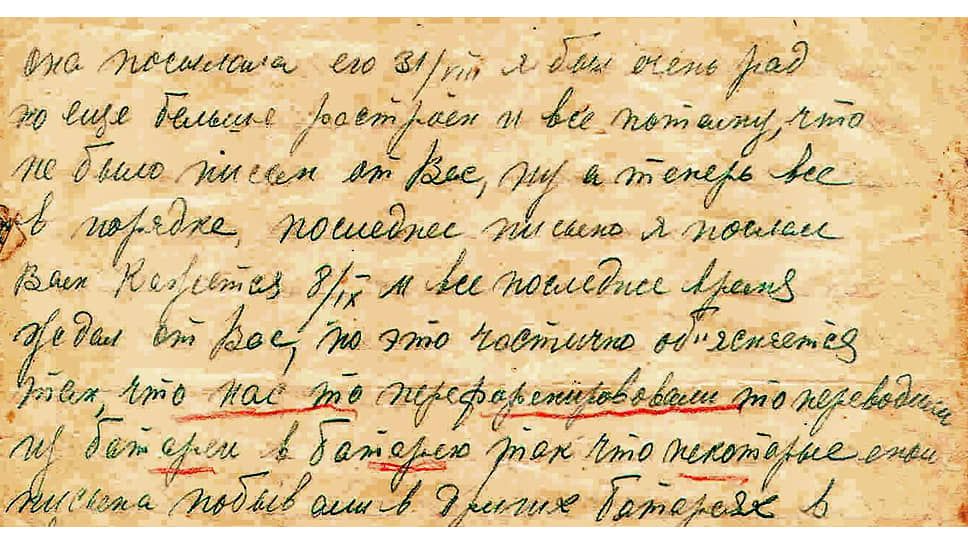 она посылала его 31/VIII я был очень рад
но еще больше ростроен и все потому, что
не было писем от Вас, ну а теперь все
в порядке, последнее письмо я послал
Вам кажется 8/IX и все последнее время
ждал от Вас, но это частично об"ясняется
тем, что нас то переформировывали то переводили
из батареи в батарею так что некоторые
письма побывали в других батареях в